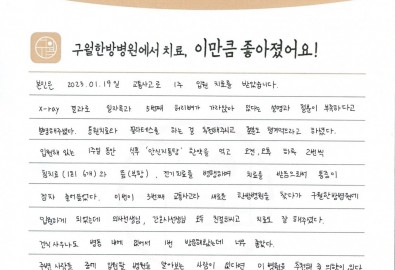 구월한방병원에서 치료, 이만큼 좋아졌어요!
본인은 2023.01.19일 교통사고로 1주 입원 치료를 받았습니다.
x-ray 결과로 일자목과 5번째 허리뼈가 가라앉아 있다는 설명과 칼슘이 부족하다고
말씀해주셨다. 도수치료와 필라테스를 하는 걸 추천해주시고 칼슘도 챙겨먹으라고 하셨다.
입원해 있는 1주일 동안 식후 "안신지통탕" 한약을 먹고 오전, 오후 하루 2번씩
침치료 (1회 6개)와 뜸(복탕), 전기치료를 병행하며 치료를 받음으로써 통증이
점차 줄어들었다. 이번이 3번째 교통사고라 새로운 한방병원을 찾다가 구월한방병원에
입원하게 되었는데 의사선생님, 간호사선생님 모두 친절하시고 치료도 잘 해주셨다.
건의 사우나도 병동 내에 있어서 1번 방문해봤는데 너무 좋았다.
주변 사람들 중에 입원할 병원을 알아보는 사람이 있다면 이 병원을 추천해 줄 의향이 있다